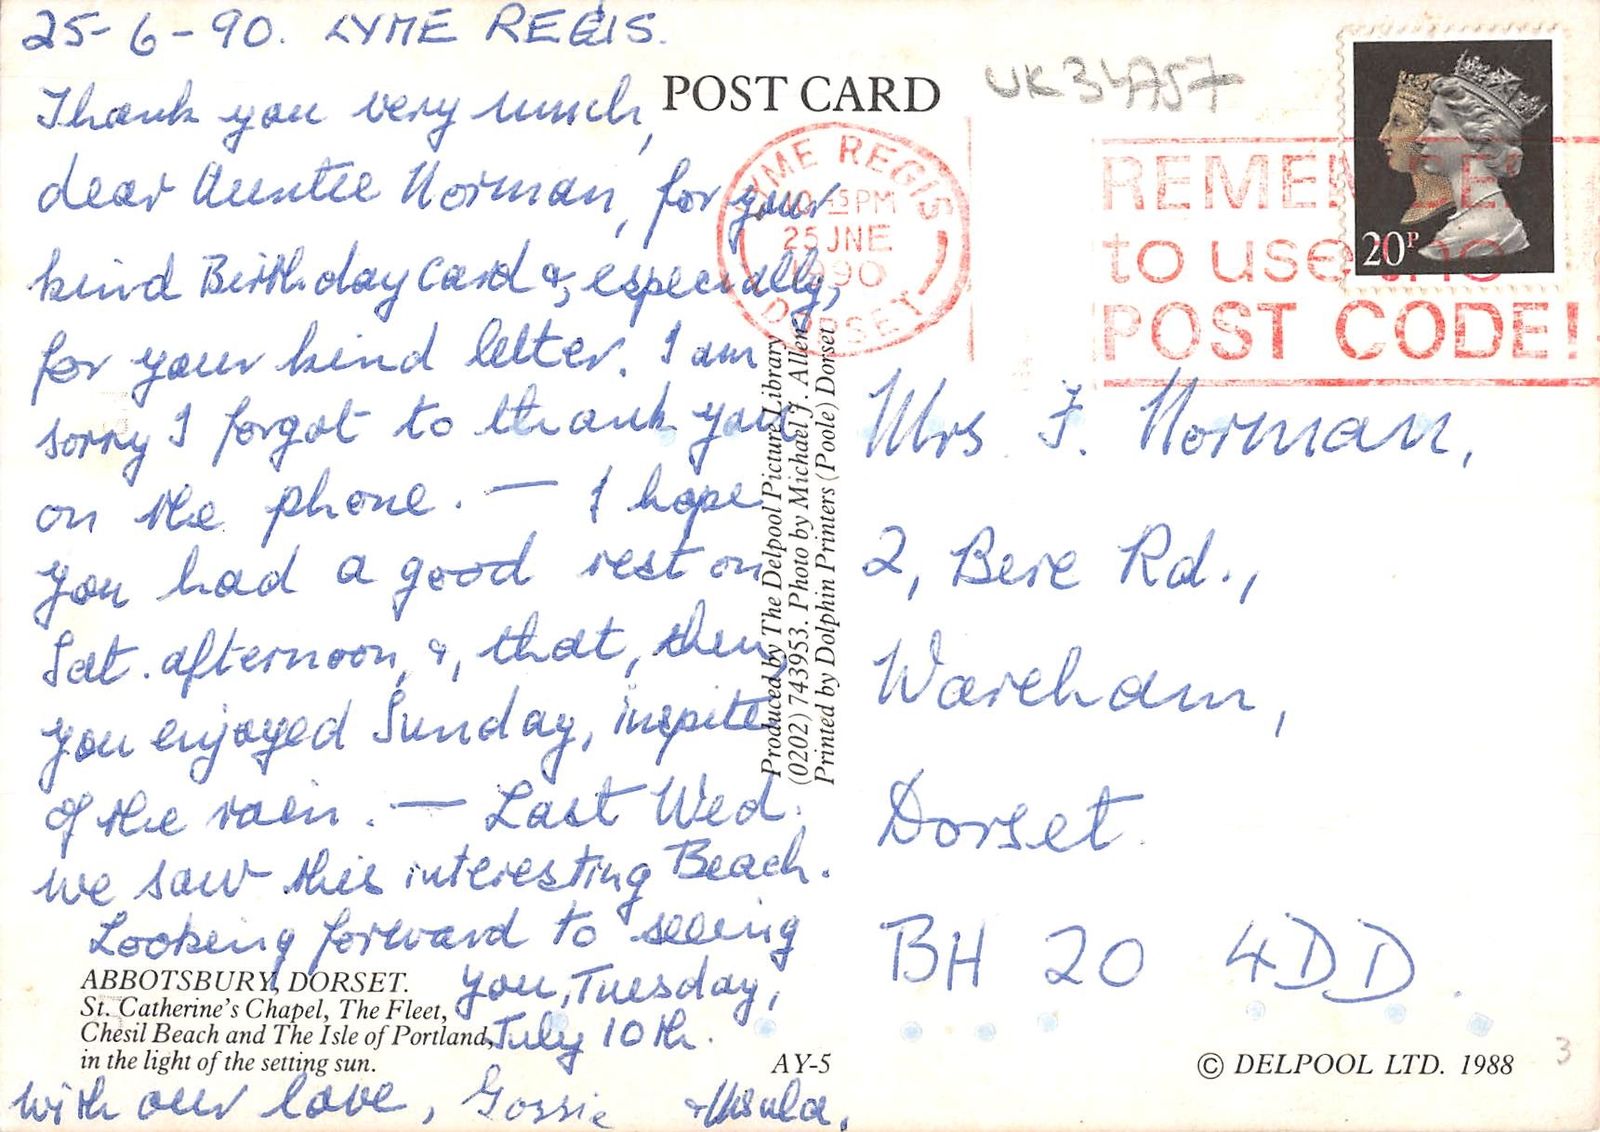 25-6-90. LYME REGIS.
Thank you very much,
dear Auntie Norman, for your
kind Birthday Card &, especially,
for your kind letter. I am
sorry I forgot to thank you
on the phone. — I hope
you had a good rest on
Sat. afternoon, &, that, then,
you enjoyed Sunday, inspite
of the rain. — Last Wed.
we saw this interesting Beach.
Looking forward to seeing
you, Tuesday,
July 10th.
with our love, Gossie & Ursula.
ABBOTSBURY, DORSET.
St. Catherine's Chapel, The Fleet,
Chesil Beach and The Isle of Portland,
in the light of the setting sun.
AY-5
POST CARD
UK34757
LYME REGIS
10.45PM
25 JNE
1990
DORSET
REMEMBER
to use the
POST CODE!
20P
Produced by The Delpool Picture Library
(0202) 743953. Photo by Michael J. Allen
Printed by Dolphin Printers (Poole) Dorset
Mrs F. Norman,
2, Bere Rd.,
Wareham,
Dorset.
BH 20 4DD.
© DELPOOL LTD. 1988
3